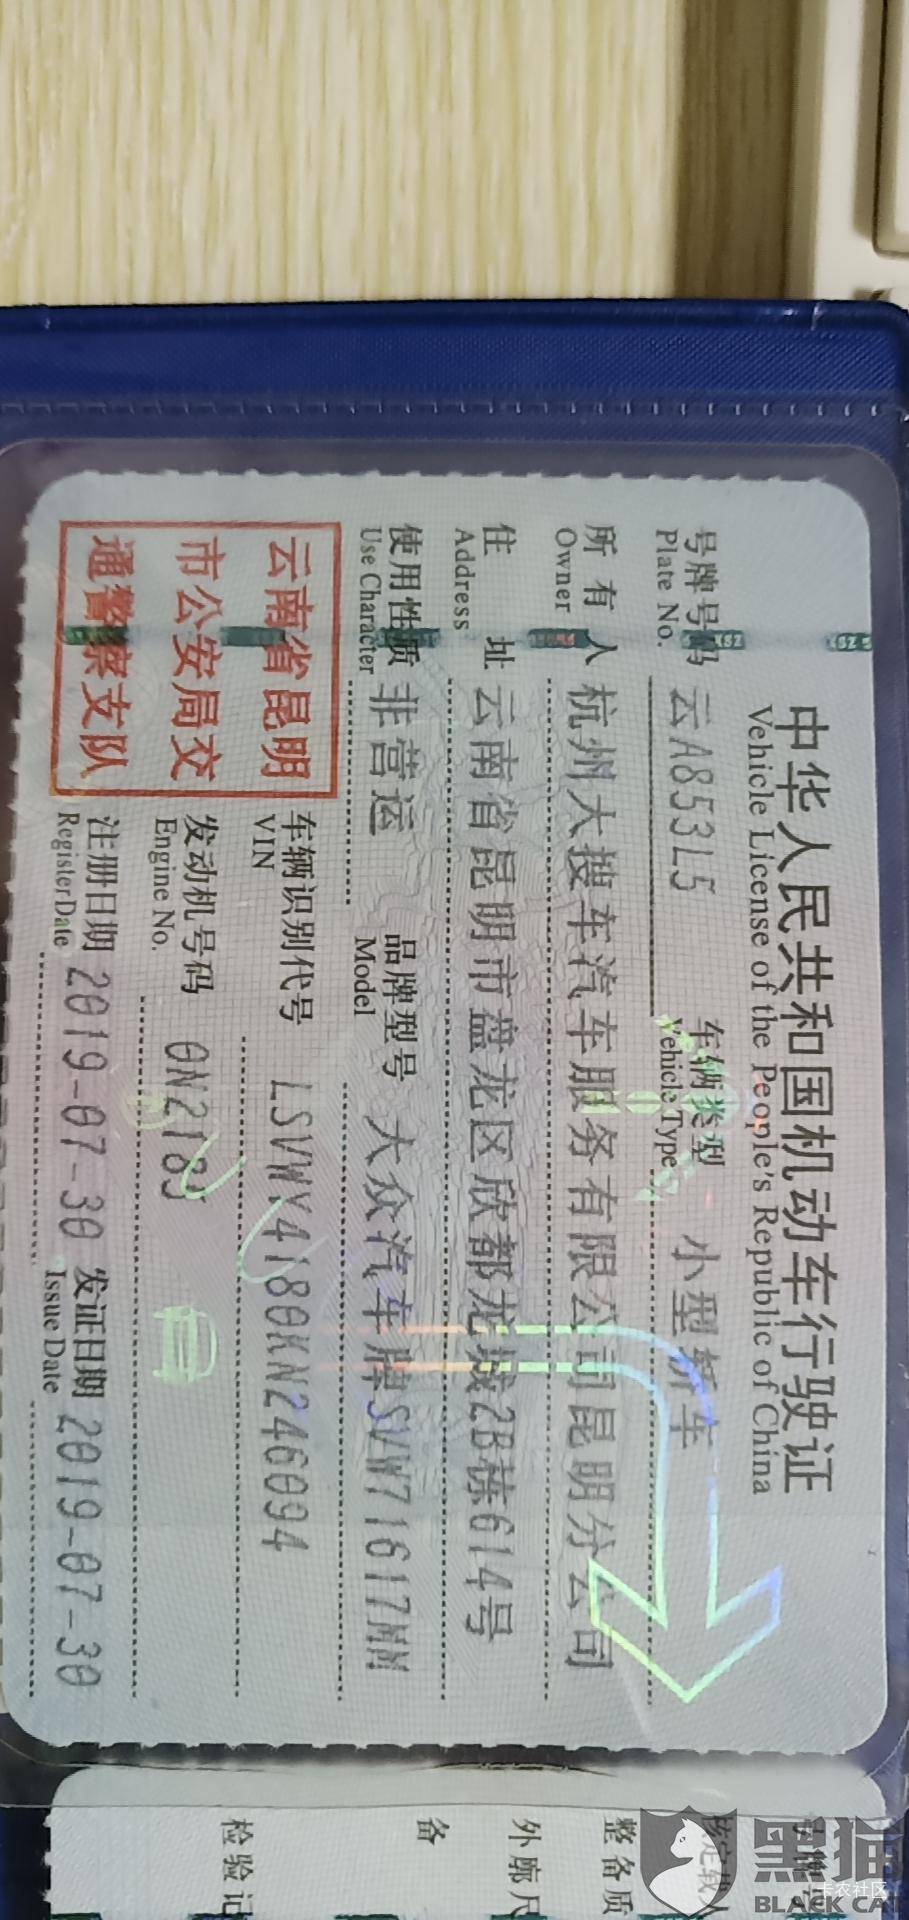 中华人民共和国机动车行驶证
Vehicle License of the People's Republic of China
号牌号码 云A853L5 车辆类型 小型轿车
Plate No. Vehicle Type
所有人 杭州大搜车汽车服务有限公司昆明分公司
Owner
住址 云南省昆明市盘龙区欣都龙城2B栋614号
Address
使用性质 非营运 品牌型号 大众汽车牌SVW71617MM
Use Character Model
云南省昆明
市公安局交
通警察支队
车辆识别代号 LSVWY4180KN246094
VIN
发动机号码 0N2189
Engine No.
注册日期 2019-07-30 发证日期 2019-07-30
Register Date Issue Date
号牌
核定载人
整备质
外廓尺
备
检验记
黑猫
BLACK CA
卡农社区